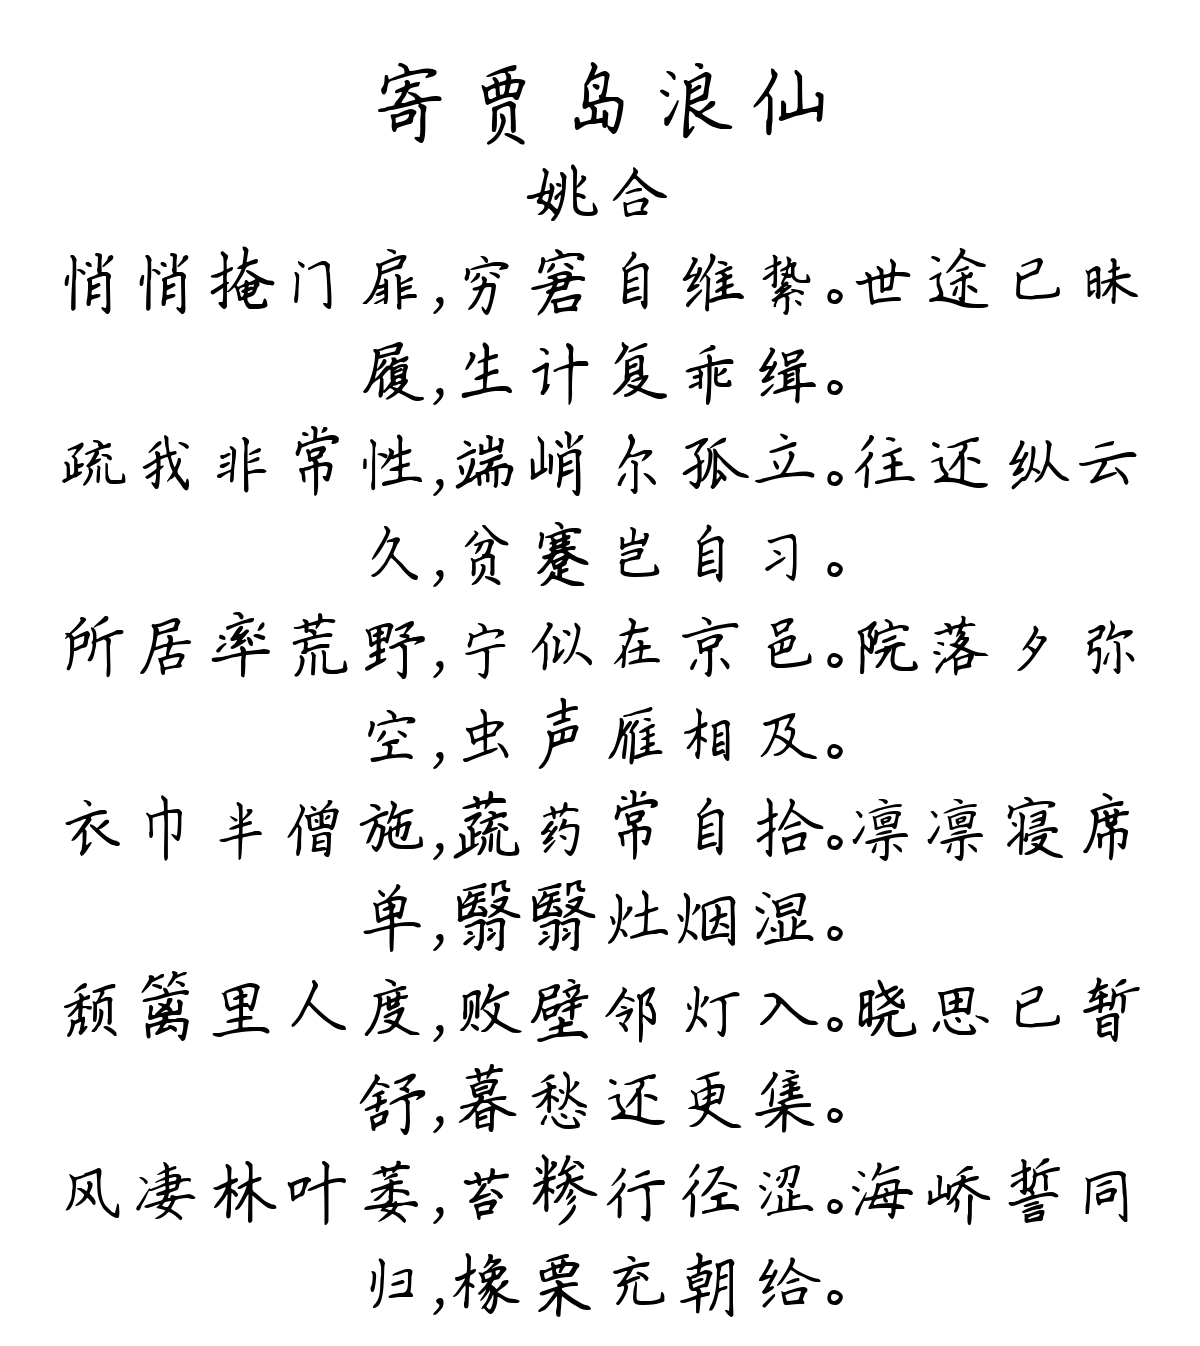 寄贾岛浪仙
姚合
悄悄掩门扉,穷窘自维絷。世途已昧
履,生计复乖缉。
疏我非常性,端峭尔孤立。往还纵云
久,贫蹇岂自习。
所居率荒野,宁似在京邑。院落夕弥
空,虫声雁相及。
衣巾半僧施,蔬药常自拾。凛凛寝席
单,翳翳灶烟湿。
颓篱里人度,败壁邻灯入。晓思已暂
舒,暮愁还更集。
风凄林叶萎,苔糁行径涩。海峤誓同
归,橡栗充朝给。